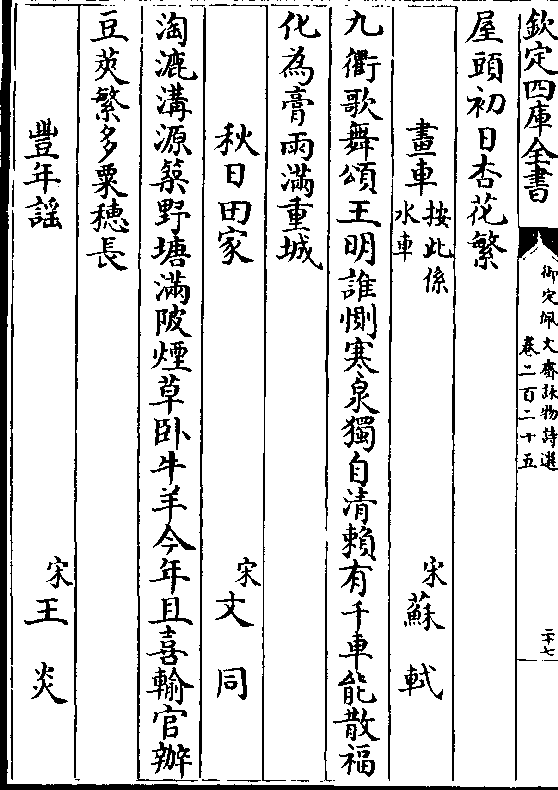 欽定四庫全書
御定佩文齋詠物詩選
卷二百二十五
二十七
屋頭初日杏花繁
畫車按此係
水車
宋蘇軾
九衢歌舞頌王明誰惻寒泉獨自清賴有千車能散福
化為膏雨滿重城
秋日田家
宋文同
淘漉溝源築野塘滿陂煙草卧牛羊今年且喜輸官辦
豆莢繁多粟穗長
豐年謡
宋王炎